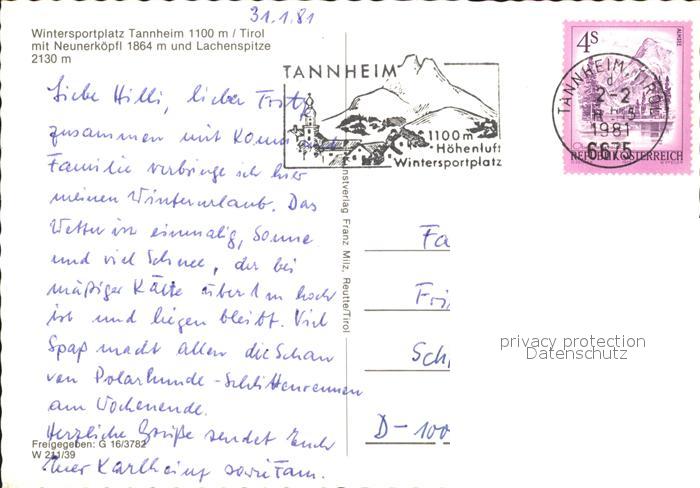 31.1.81
Wintersportplatz Tannheim 1100 m / Tirol
mit Neunerköpfl 1864 m und Lachenspitze
2130 m
Liebe Hilli, lieber Fritz
zusammen mit
Familie verbringe ich hier
meinen Winterurlaub. Das
Wetter ist einmalig, Sonne
und viel Schnee, der bei
mäßiger Kälte über 1 m hoch
ist und liegen bleibt. Viel
Spaß macht allen die Schau
von Polarhunde-Schlittenrennen
am Wochenende.
Herzliche Grüße sendet Euch
Euer Karlheinz sowie Fam.
Freigegeben: G 16/3782
W 211/39
Kunstverlag Franz Milz, Reutte/Tirol
TANNHEIM
1100 m
Höhenluft
Wintersportplatz
4S
ALMSEE
REPUBLIK ÖSTERREICH
TANNHEIM, TIROL
d
2-2
1981
6675
Fa
Fri
Sch
D-100
privacy protection
Datenschutz